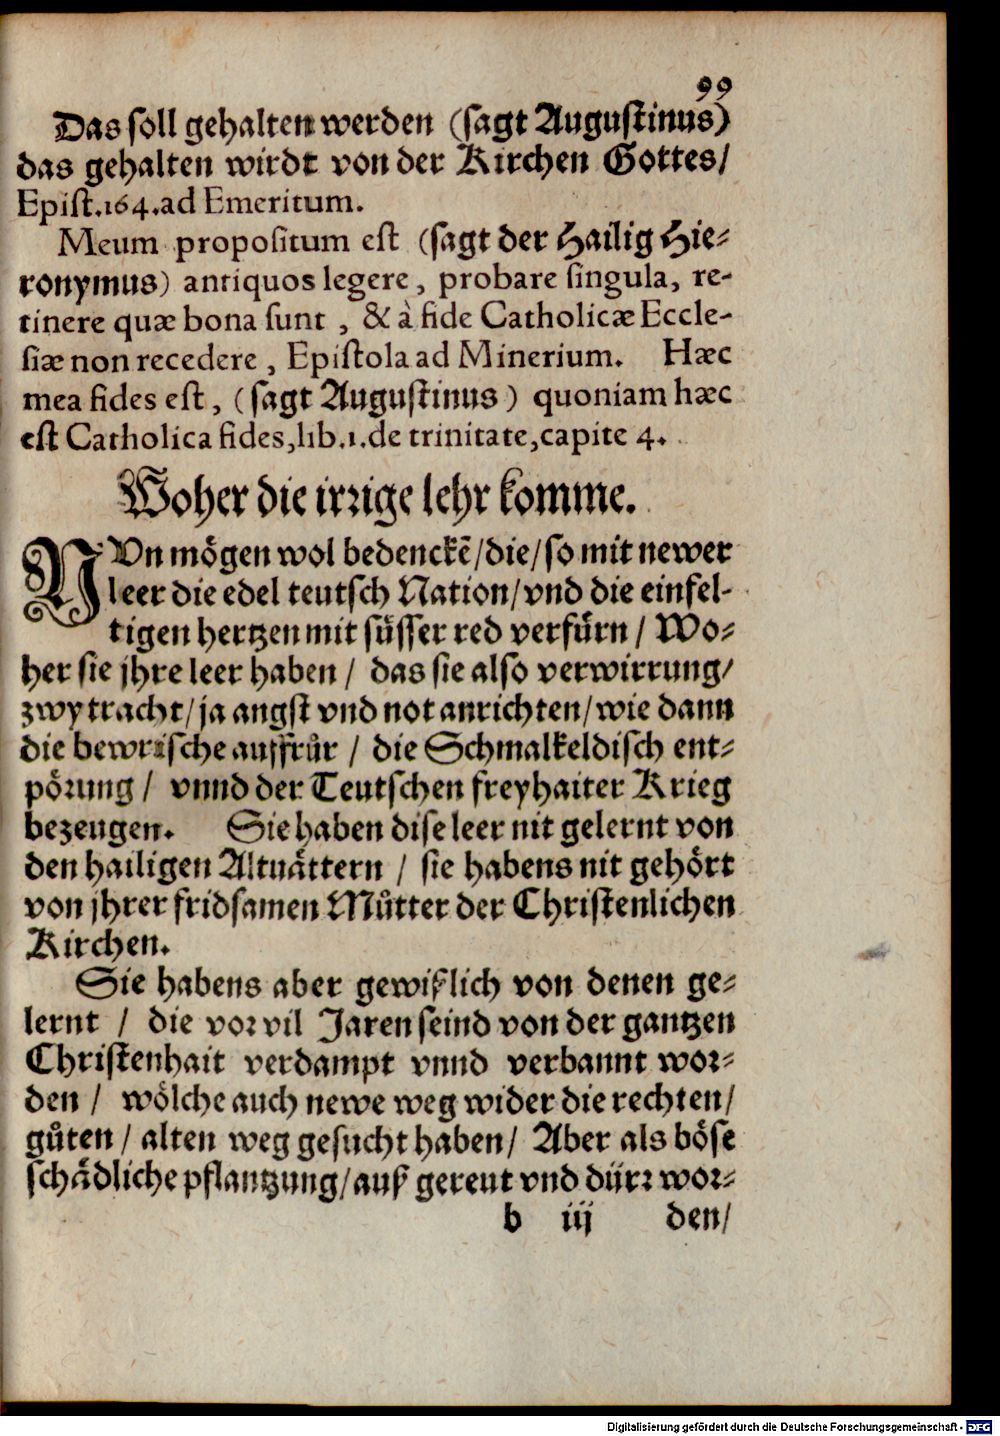 99
Das soll gehalten werden (sagt Augustinus)
das gehalten wirdt von der Kirchen Gottes/
Epist.164.ad Emeritum.
Meum propositum est (sagt der Hailig Hie-
ronymus) antiquos legere, probare singula, re-
tinere quæ bona sunt, & à fide Catholicæ Eccle-
siæ non recedere, Epistola ad Minerium. Hæc
mea fides est, (sagt Augustinus) quoniam hæc
est Catholica fides,lib.1.de trinitate,capite 4.
Woher die irrige lehr komme.
NVn mögen wol bedenckẽ/die/so mit newer
leer die edel teutsch Nation/vnd die einfel-
tigen hertzen mit süsser red verfürn/ Wo-
her sie jhre leer haben/ das sie also verwirrung/
zwytracht/ja angst vnd not anrichten/wie dann
die bewrische auffrůr/ die Schmalkeldisch ent-
pörung/ vnnd der Teutschen freyhaiter Krieg
bezeugen. Sie haben dise leer nit gelernt von
den hailigen Altuättern/ sie habens nit gehört
von jhrer fridsamen Můtter der Christenlichen
Kirchen.
Sie habens aber gewißlich von denen ge-
lernt/ die vor vil Jaren seind von der gantzen
Christenhait verdampt vnnd verbannt wor-
den/ wölche auch newe weg wider die rechten/
gůten/ alten weg gesucht haben/ Aber als böse
schädliche pflantzung/auß gereut vnd dürr wor-
b iij den/
Digitalisierung gefördert durch die Deutsche Forschungsgemeinschaft - DFG